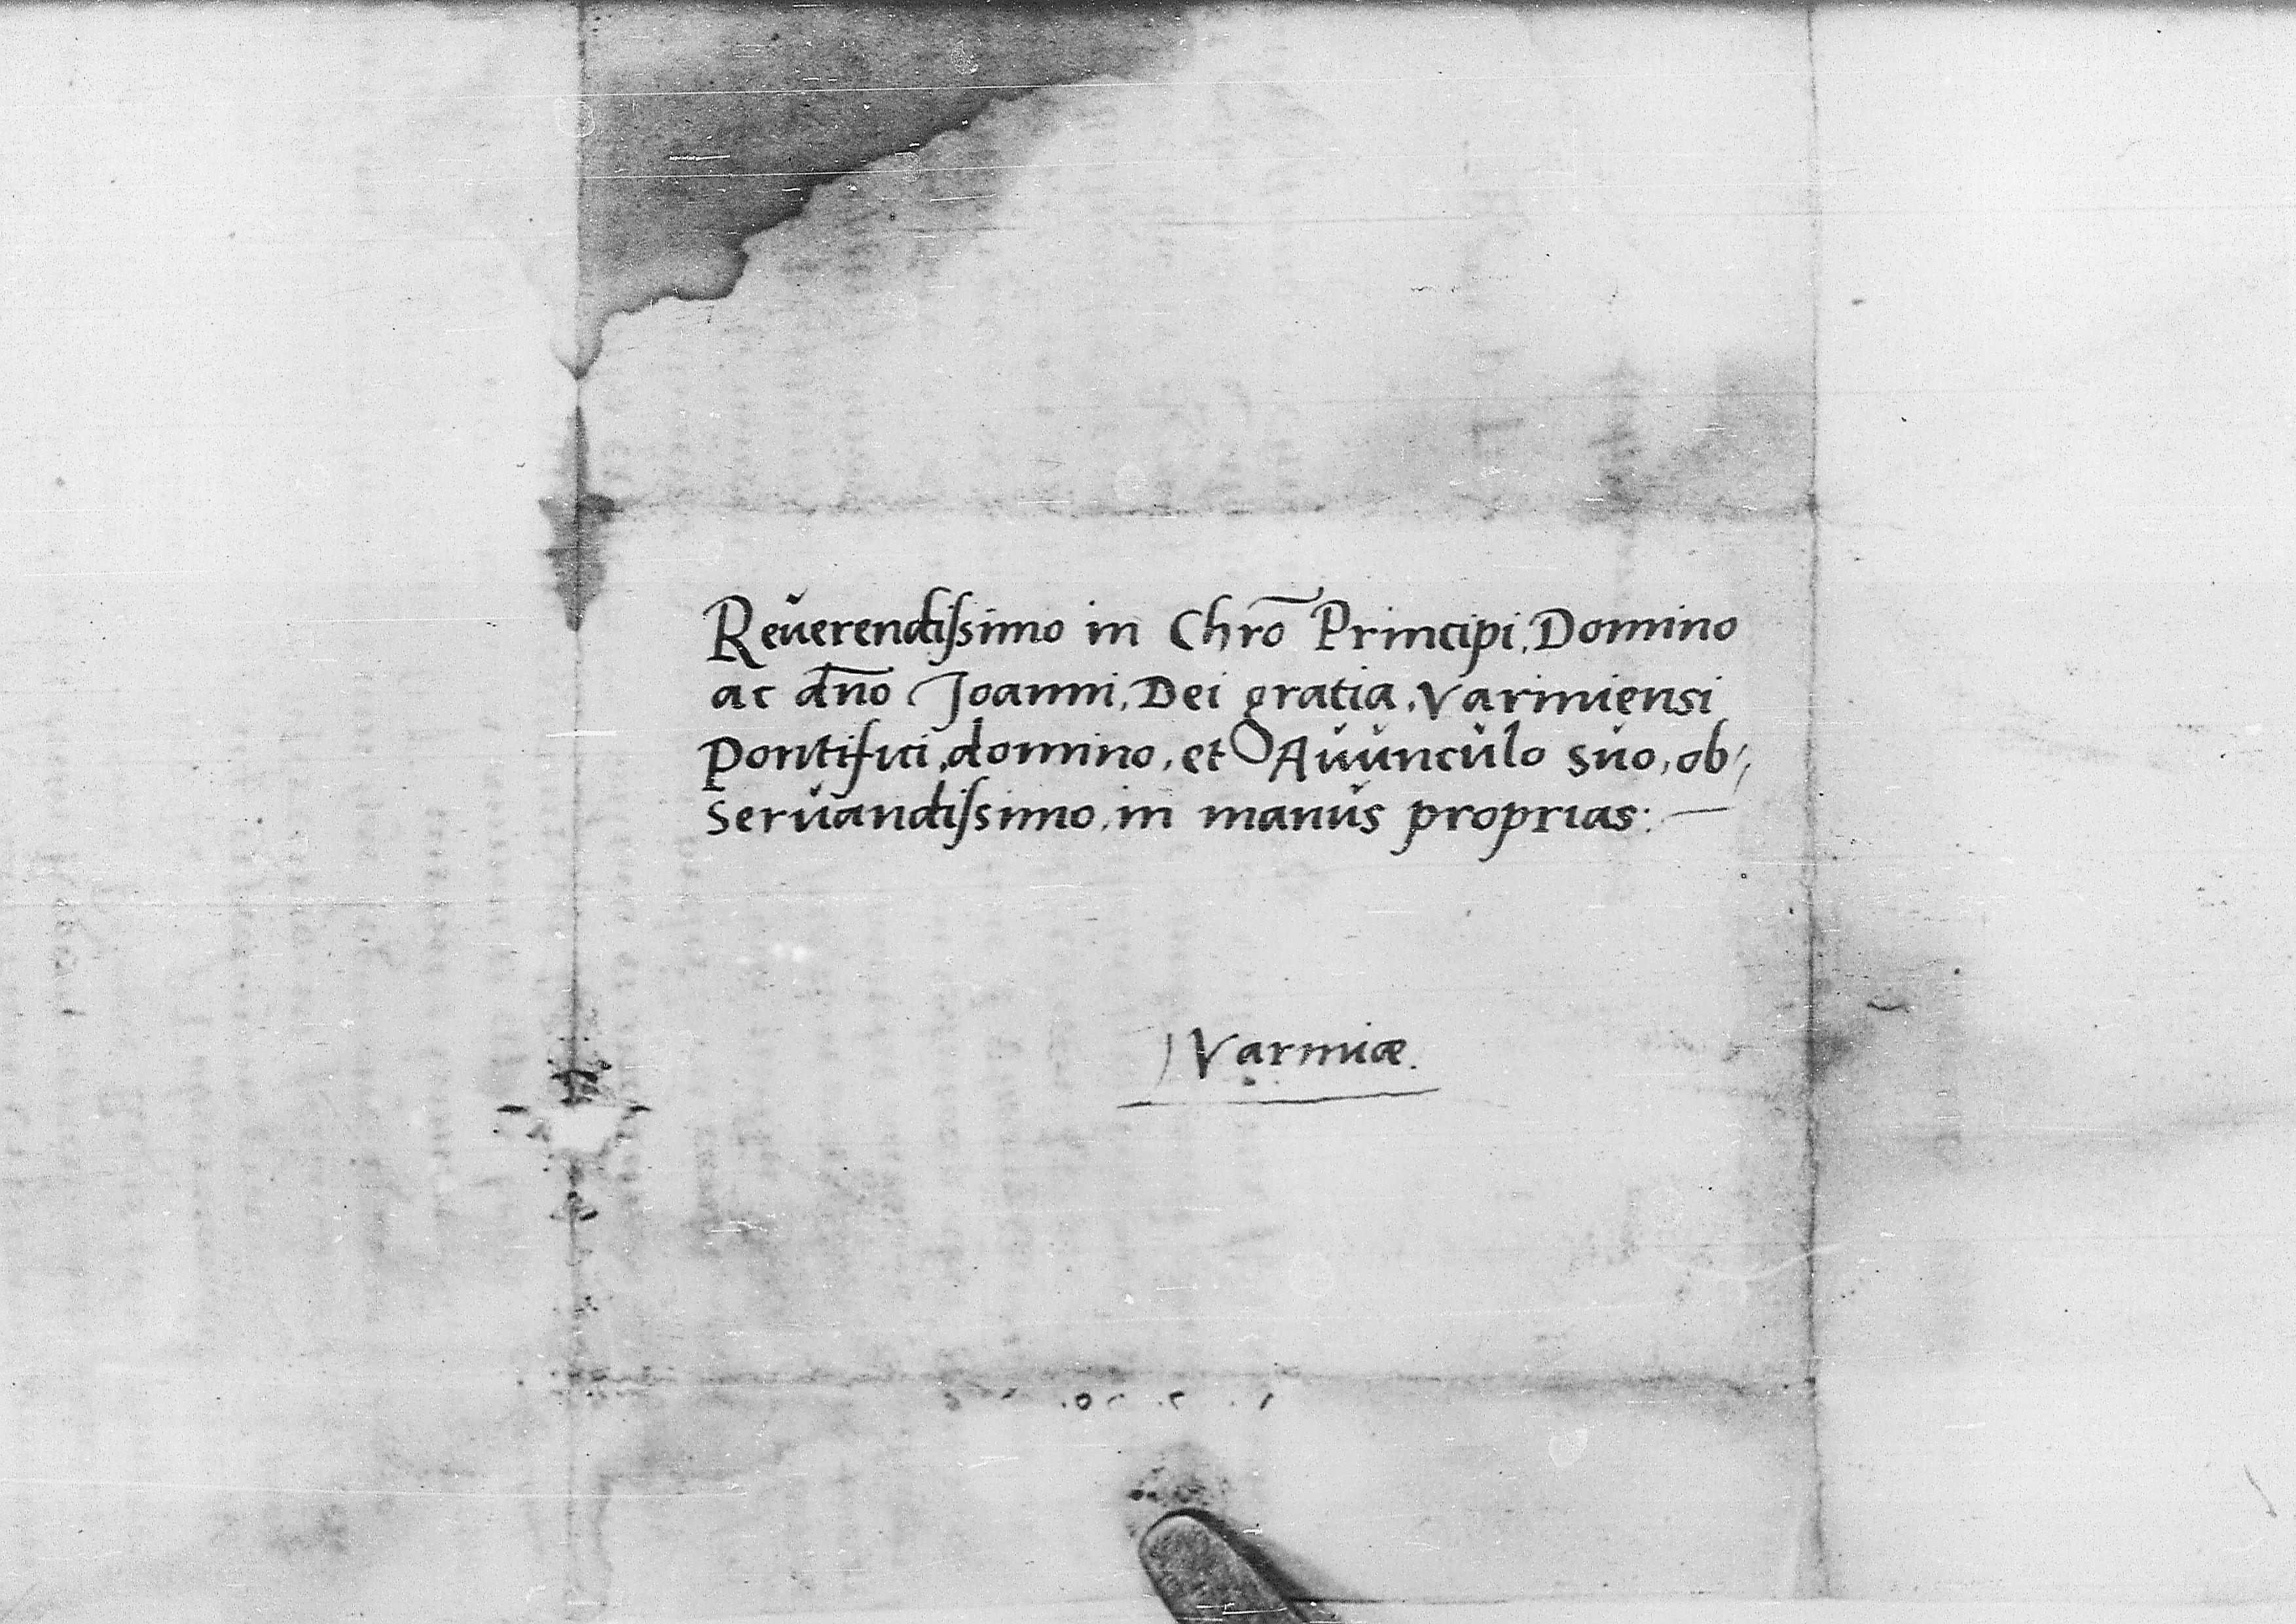 Reŭerendiſsimo in Chrō Principi, Domino
ac dn̄o Joanni, Dei gratia, Varmiensi
Pontifici, domino, et Aŭŭncŭlo sŭo, ob⸗
Serŭandiſsimo, in manŭs proprias:
Varmiæ.